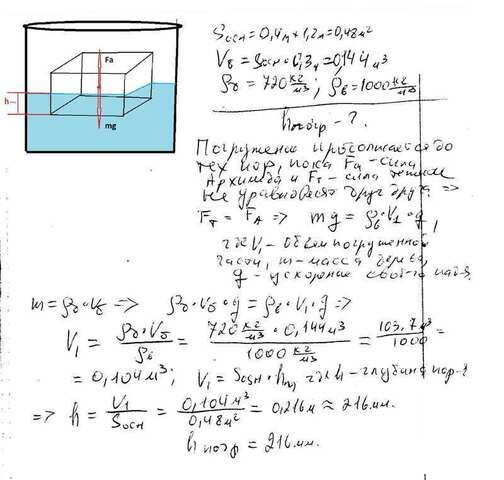 Fa
h
mg
Sосн = 0,4м × 1,2м = 0,48м²
Vб = Sосн · 0,3м = 0,144 м³
ρб = 720 кг/м³ ; ρв = 1000 кг/м³
hпогр - ?
Погружение продолжается до
тех пор, пока Fа - сила
Архимеда и Fт - сила тяжести
не уравновесят друг друга =>
Fт = FА => mg = ρв · V₁ · g,
где V₁ - объем погруженной
части, m - масса дерева,
g - ускорение своб-го пад-я.
m = ρб · Vб => ρб · Vб · g = ρв · V₁ · g =>
V₁ = ρб · Vб / ρв = 720 кг/м³ · 0,144 м³ / 1000 кг/м³ = 103,7 м³ / 1000 =
= 0,104 м³; V₁ = Sосн · h, где h - глубина погр-я
=> h = V₁ / Sосн = 0,104 м³ / 0,48 м² = 0,216 м ≈ 216 мм.
hпогр = 216 мм.